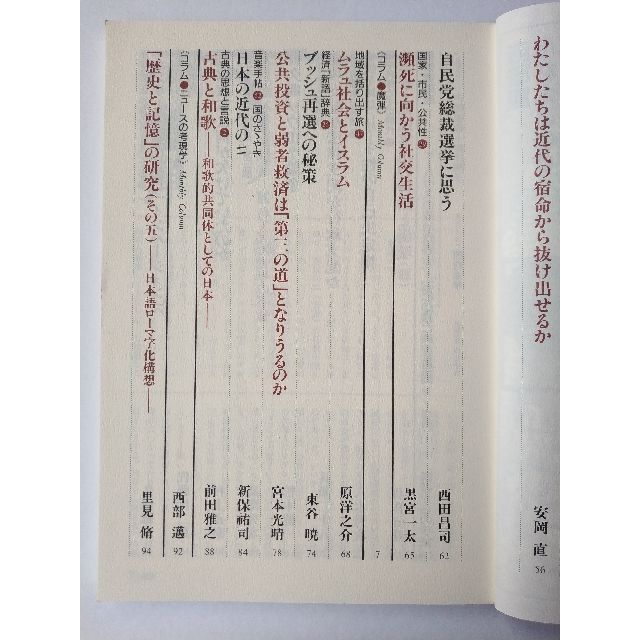 わたしたちは近代の宿命から抜け出せるか
安岡 直
56
自民党総裁選挙に思う
西田昌司
62
国家・市民・公共性
瀕死に向かう社交生活
黒宮一太
65
〈コラム●魔弾〉Monthly Column
7
地域を括り出す旅
ムラュ社会とイスラム
原洋之介
68
経済「新語」辞典
ブッシュ再選への秘策
東谷 暁
74
公共投資と弱者救済は「第三の道」となりうるのか
宮本光晴
78
音楽手帖 国のさゝやき
日本の近代の二
新保祐司
84
古典の思想と言説
古典と和歌――和歌的共同体としての日本――
前田雅之
88
〈コラム●ニュースの考現学〉Monthly Column
西部 邁
92
「歴史と記憶」の研究(その五)――日本語ローマ字化構想――
里見 脩
94